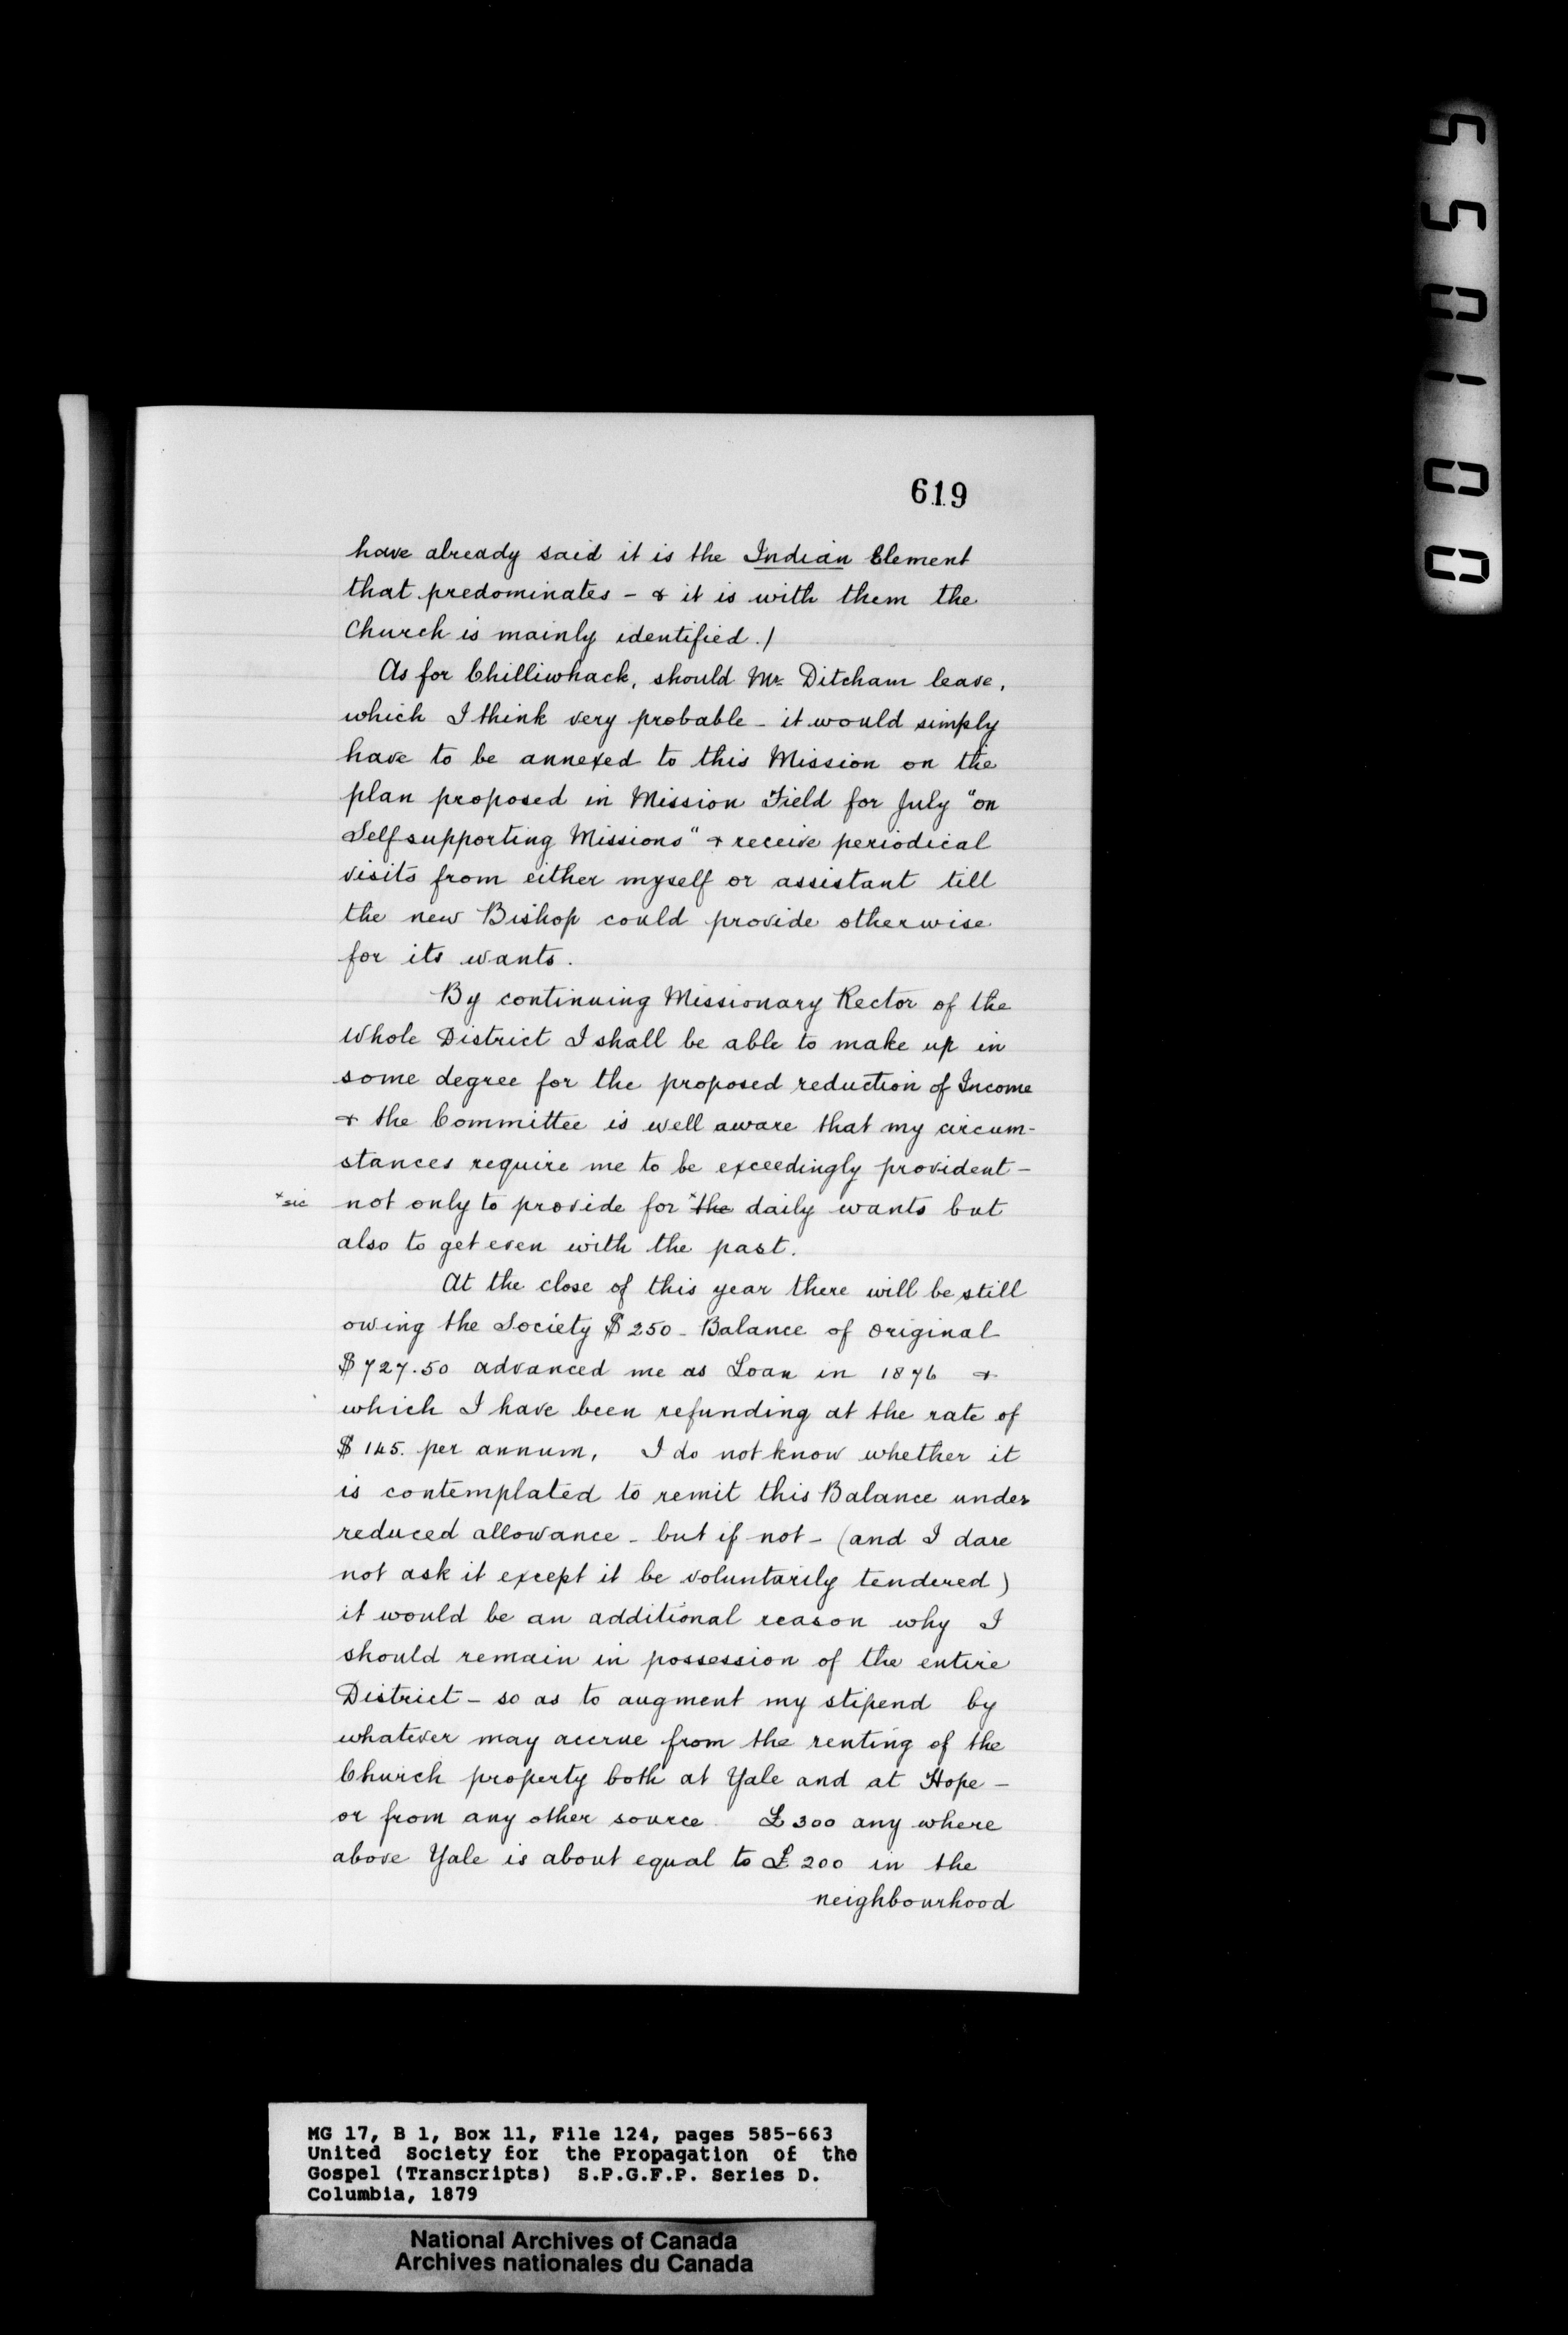 619
have already said it is the Indian Element
that predominates - & it is with them the
Church is mainly identified.)
As for Chilliwhack, should Mr. Ditcham leave,
which I think very probable - it would simply
have to be annexed to this Mission on the
plan proposed in Mission Field for July "on
Self supporting Missions" & receive periodical
visits from either myself or assistant till
the new Bishop could provide otherwise
for its wants.
By continuing Missionary Rector of the
Whole District I shall be able to make up in
some degree for the proposed reduction of Income
& the Committee is well aware that my circum-
stances require me to be exceedingly provident -
x sic not only to provide for x the daily wants but
also to get even with the past.
At the close of this year there will be still
owing the Society $250 - Balance of original
$727.50 advanced me as Loan in 1876 &
which I have been refunding at the rate of
$145. per annum. I do not know whether it
is contemplated to remit this Balance under
reduced allowance - but if not - (and I dare
not ask it except it be voluntarily tendered)
it would be an additional reason why I
should remain in possession of the entire
District - so as to augment my stipend by
whatever may accrue from the renting of the
Church property both at Yale and at Hope -
or from any other source. £300 any where
above Yale is about equal to £200 in the
neighbourhood
MG 17, B 1, Box 11, File 124, pages 585-663
United Society for the Propagation of the
Gospel (Transcripts) S.P.G.F.P. Series D.
Columbia, 1879
National Archives of Canada
Archives nationales du Canada
001055